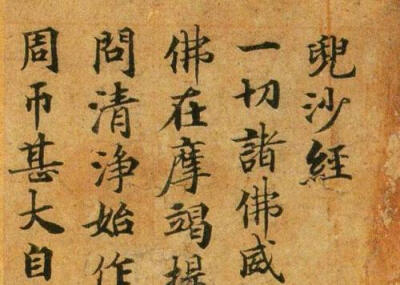 兜沙經
一切諸佛威
佛在摩竭提
問清淨始作
周帀甚大自